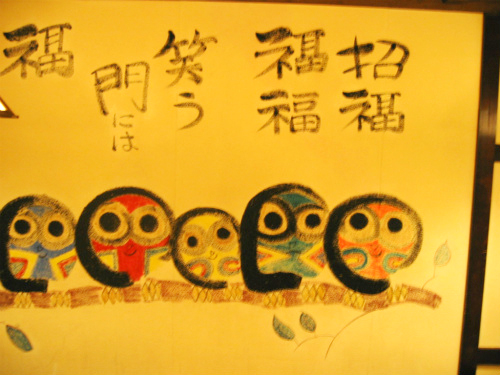 招福
福福
笑う
門には
福